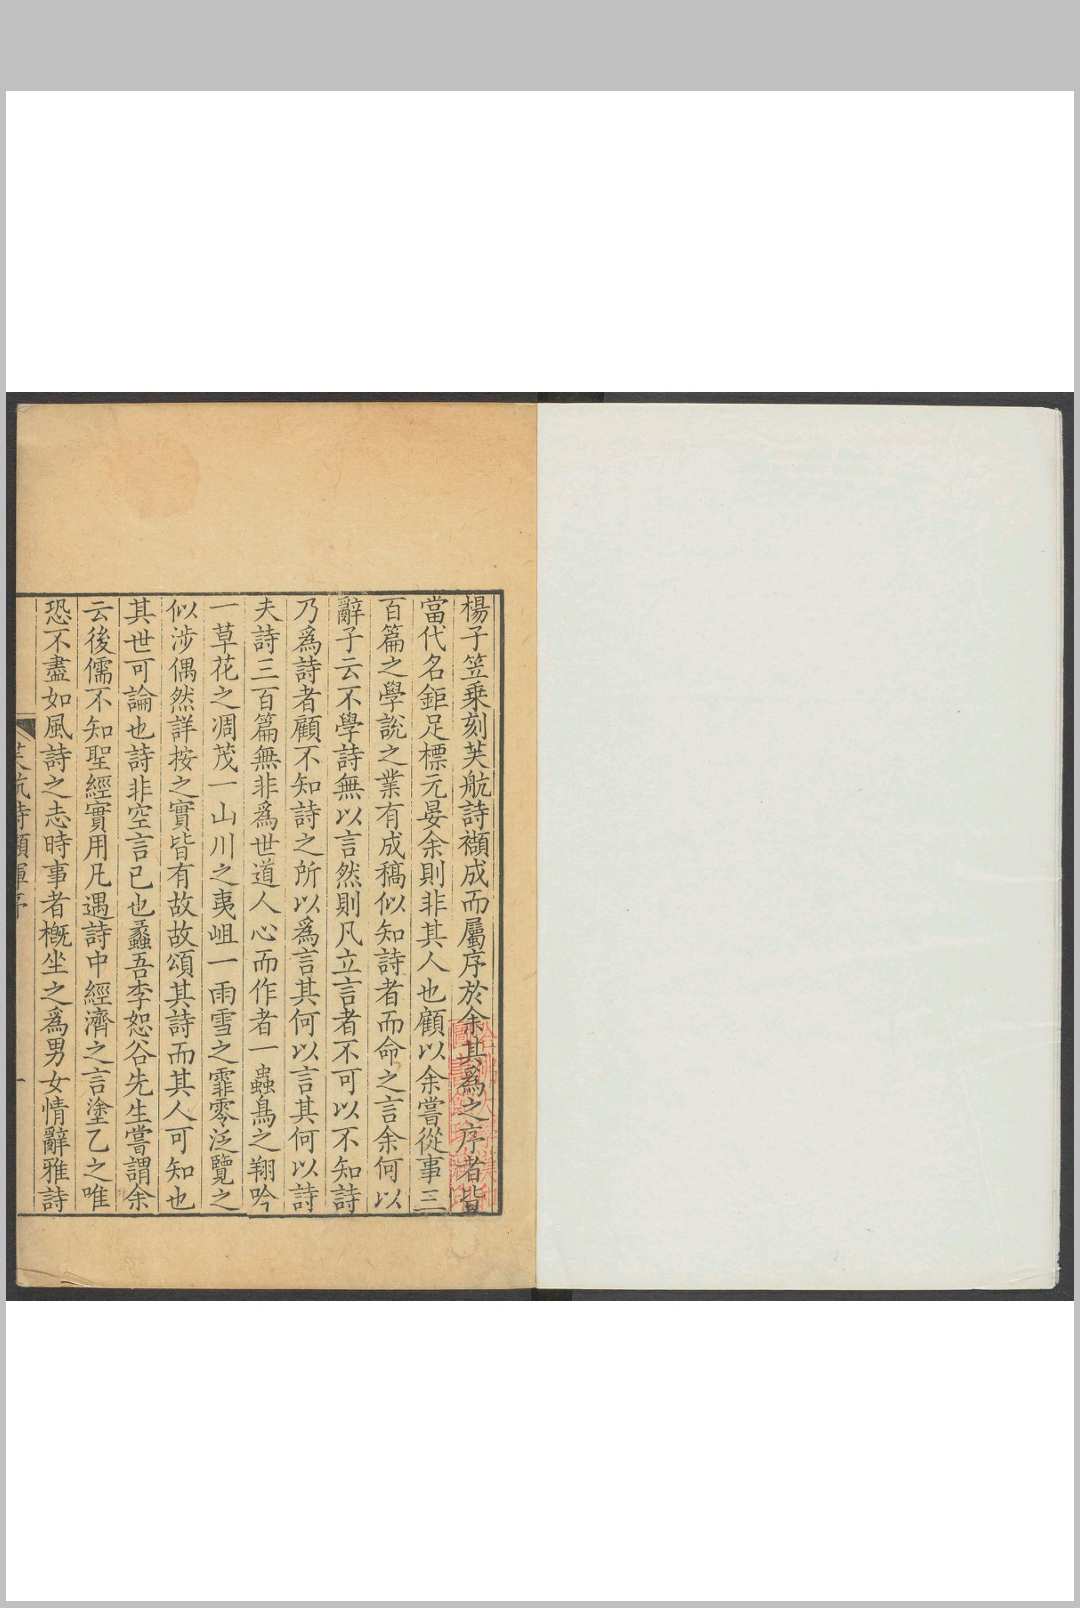 楊子笠乘刻芙航詩襭成而屬序於余其爲之序者皆
當代名鉅足標元晏余則非其人也顧以余嘗從事三
百篇之學說之業有成稿似知詩者而命之言余何以
辭子云不學詩無以言然則凡立言者不可以不知詩
乃爲詩者顧不知詩之所以爲言其何以言其何以詩
夫詩三百篇無非爲世道人心而作者一蟲鳥之翔吟
一草花之凋茂一山川之夷岨一雨雪之霏零泛覽之
似涉偶然詳按之實皆有故故頌其詩而其人可知也
其世可論也詩非空言已也蠡吾李恕谷先生嘗謂余
云後儒不知聖經實用凡遇詩中經濟之言塗乙之唯
恐不盡如風詩之志時事者槪坐之爲男女情辭雅詩
芙航詩襭 序 一